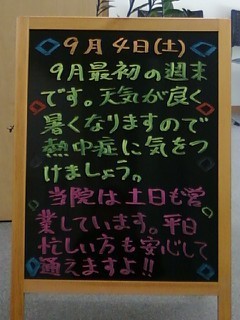 9月4日(土)
9月最初の週末
です。天気が良く
暑くなりますので
熱中症に気をつ
けましょう。
当院は土日も営
業しています。平日
忙しい方も安心して
通えますよ!!